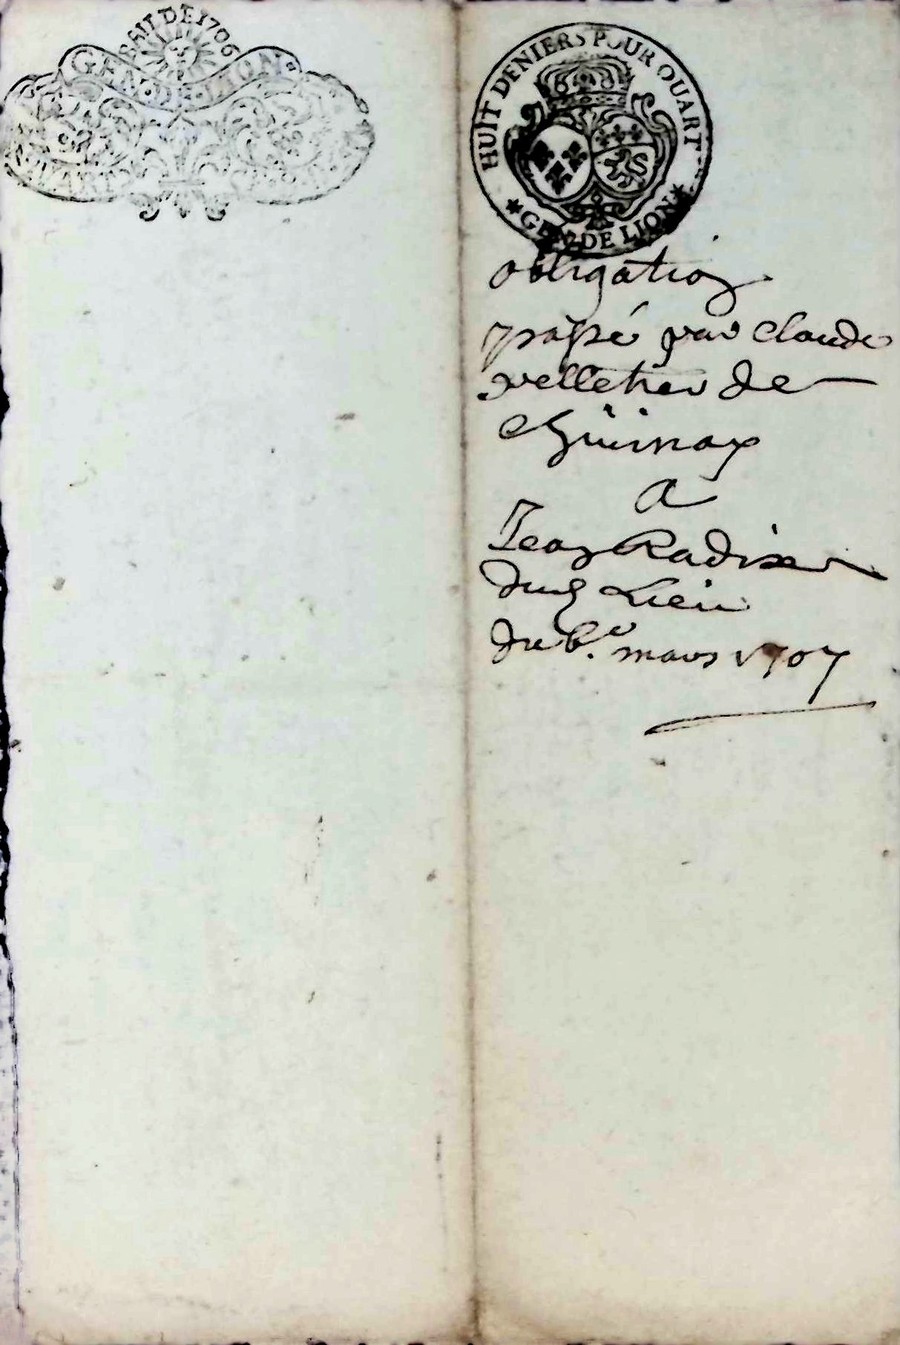 BAIL DE 1706
GEN·DE·LION
HUIT DENIERS POUR QUART
GEN DE LION
obligation
passé par Claude
pelletier de
Chuinax
A
Jean Radix
dud Lieu
du 6.e mars 1707